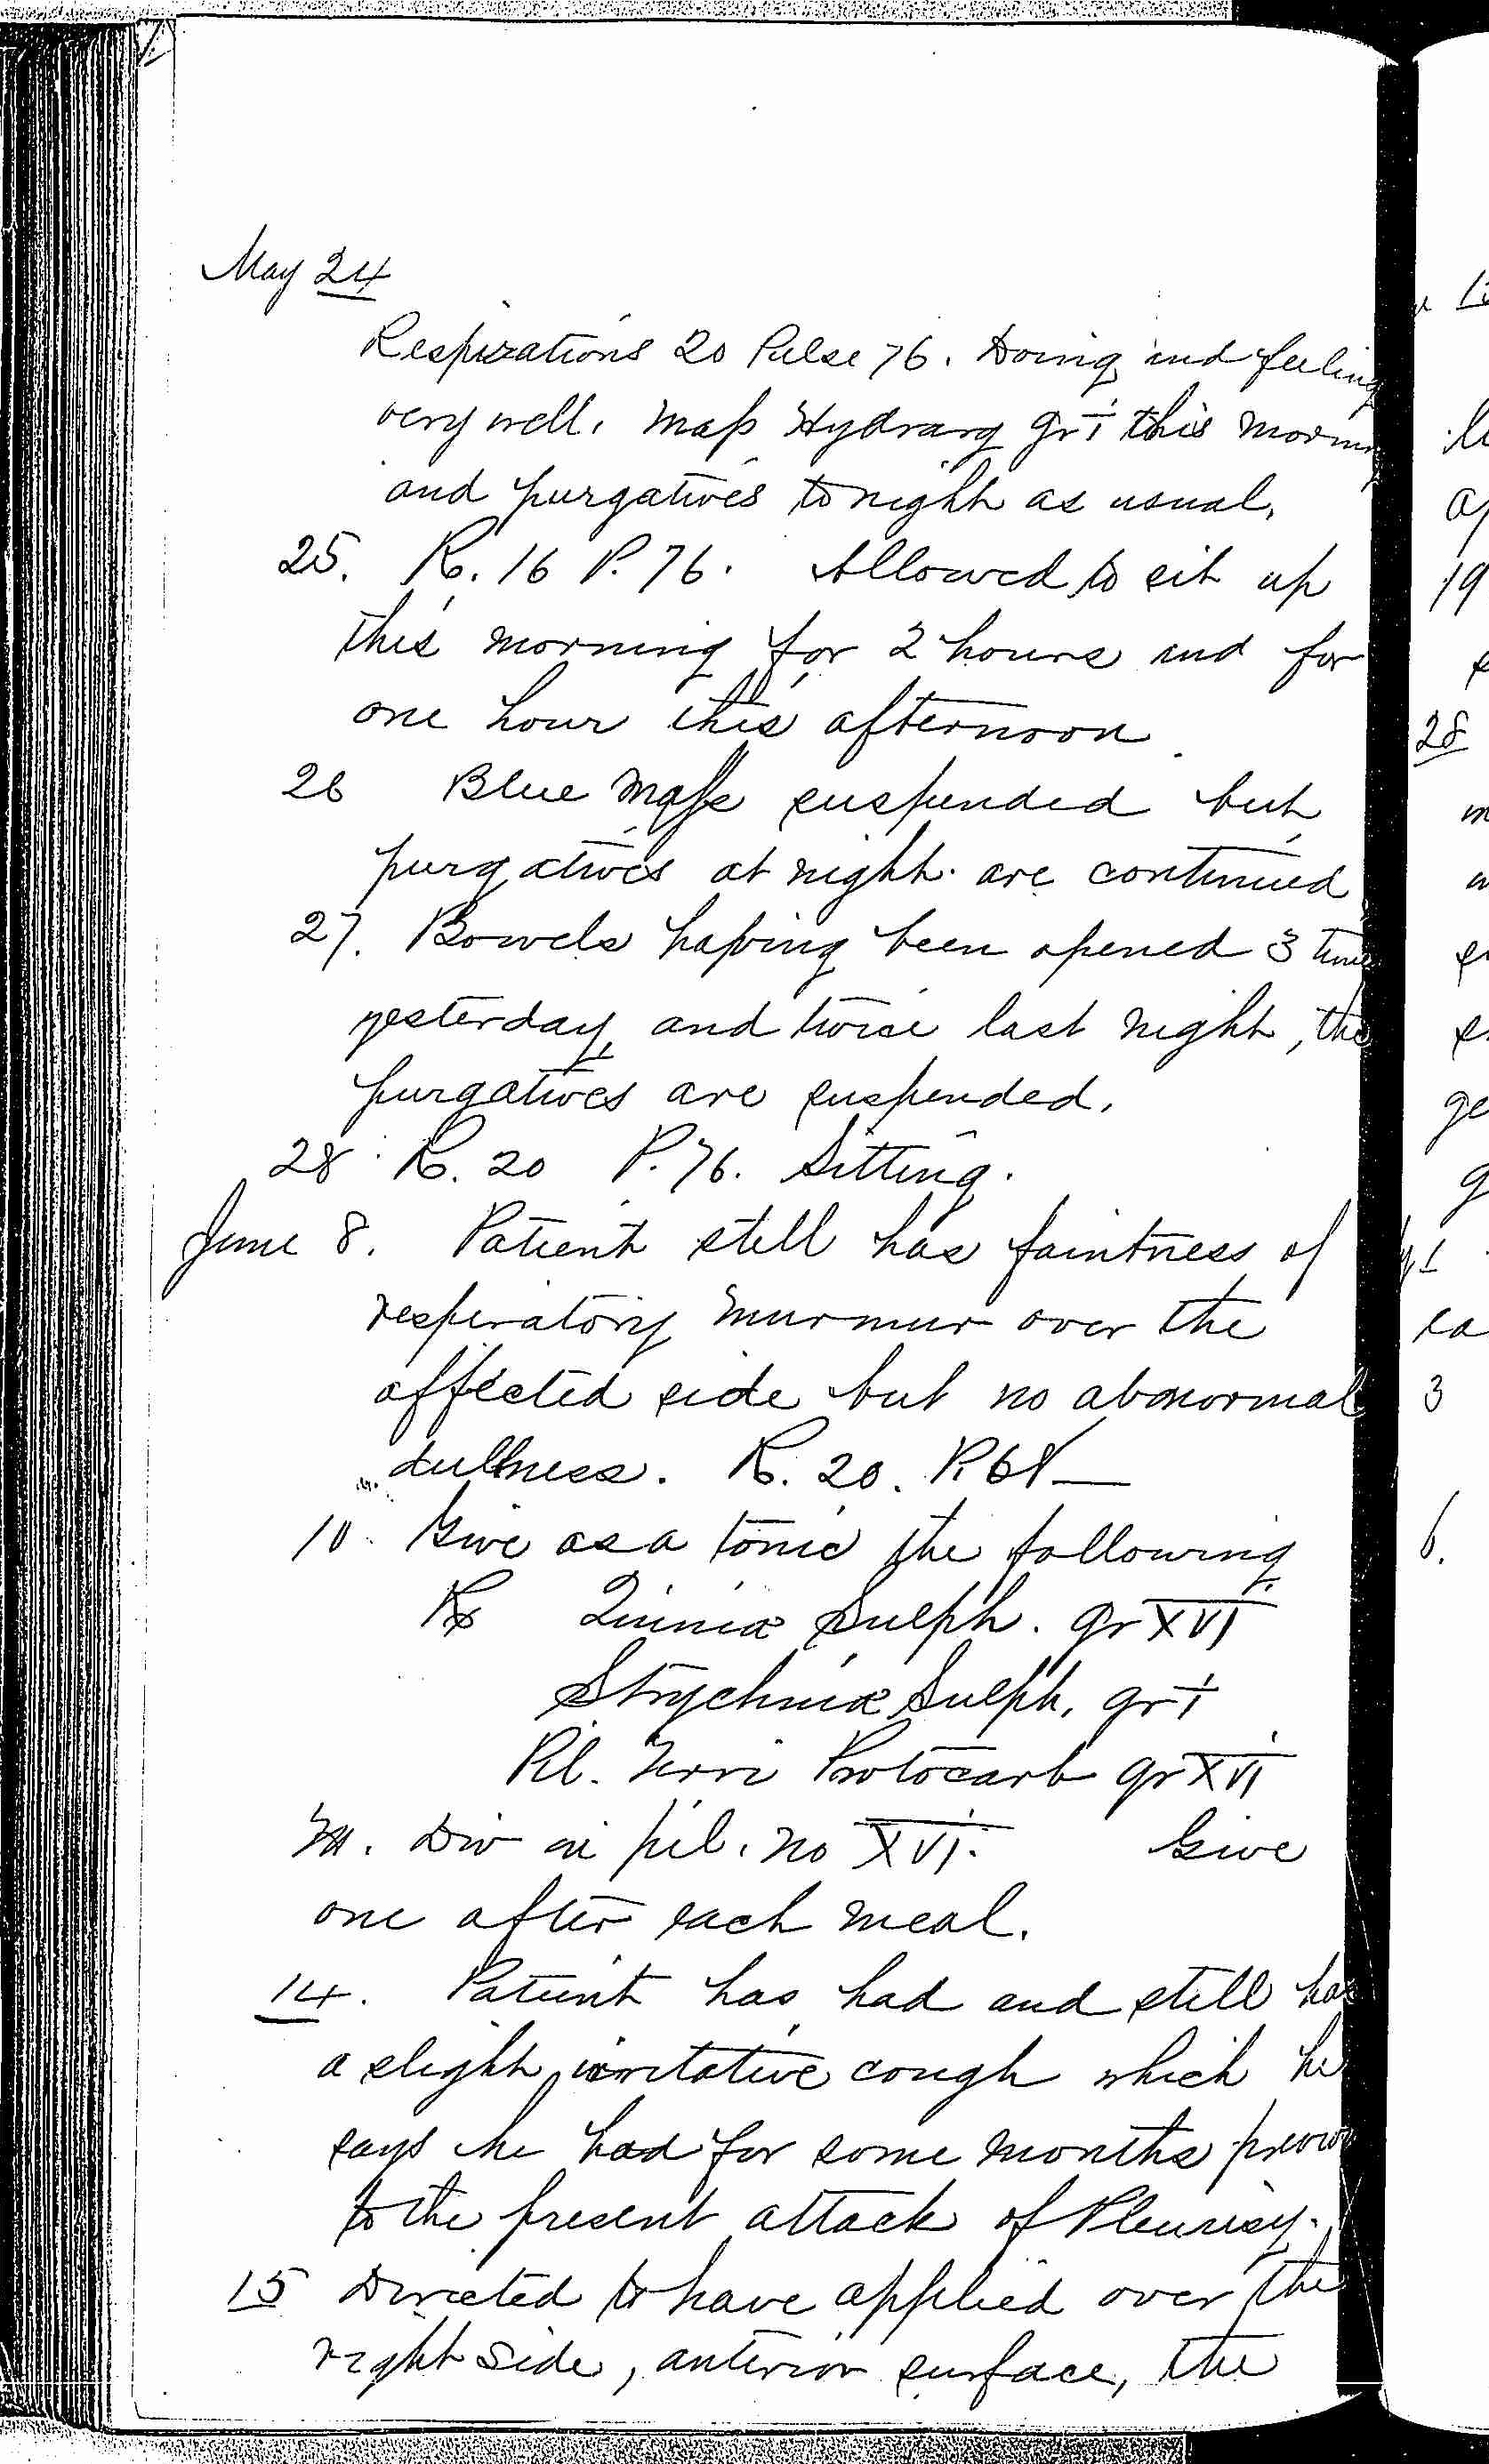 May 24
Respirations 20 Pulse 76. Doing and feeling
very well. Mass Hydrarg gr i this morning
and purgatives to night as usual.
25. R. 16 P. 76. Allowed to sit up
this morning for 2 hours and for
one hour this afternoon.
26 Blue Mass suspended but
purgatives at night are continued
27. Bowels having been opened 3 times
yesterday and twice last night, the
purgatives are suspended.
28 R. 20 P. 76. Sitting.
June 8. Patient still has faintness of
respiratory murmur over the
affected side but no abnormal
dullness. R. 20. P. 68—
10. Give as a tonic the following
Rx Quiniæ Sulph. gr XVI
Strychniæ Sulph. gr i
Pil. Ferri Protocarb gr XVI
M. Div in pil. no XVI. Give
one after each meal.
14. Patient has had and still has
a slight irritative cough which he
says he had for some months previous
to the present attack of Pleurisy.
15 Directed to have applied over the
right side, anterior surface, the
19
28
ge
3
6.